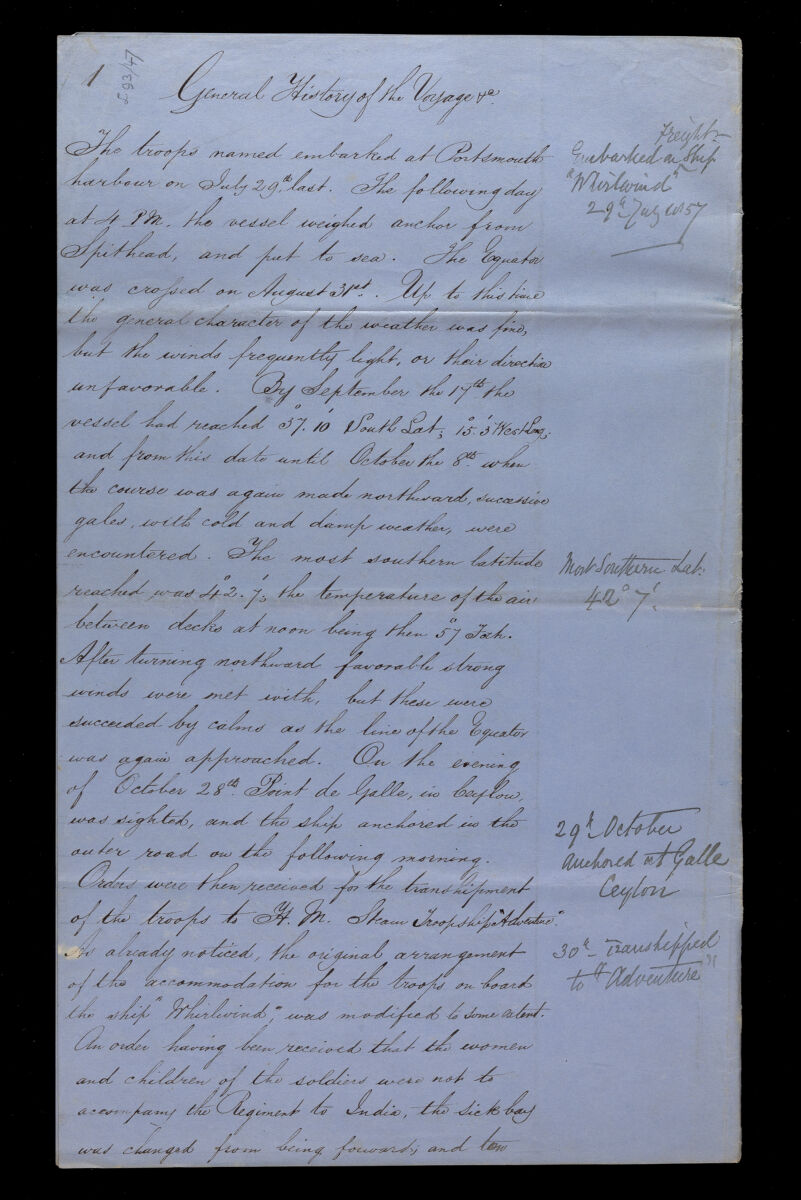 1
£93/47
General History of the Voyage &c.
The troops named embarked at Portsmouth
harbour on July 29th last. The following day
at 4 P.M. the vessel weighed anchor from
Spithead, and put to sea. The Equator
was crossed on August 31st. Up to this time
the general character of the weather was fine,
but the winds frequently light, or their direction
unfavorable. By September the 17th the
vessel had reached 37°. 10' South Lat; 15°. 3' West Long;
and from this date until October the 8th when
the course was again made northward, successive
gales, with cold and damp weather, were
encountered. The most southern latitude
reached was 42°. 7', the temperature of the air
between decks at noon being then 57° Fah.
After turning northward favorable strong
winds were met with, but these were
succeeded by calms as the line of the Equator
was again approached. On the evening
of October 28th Point de Galle, in Ceylon,
was sighted, and the ship anchored in the
outer road on the following morning.
Orders were then received for the transhipment
of the troops to H. M. Steam Troopship "Adventure".
As already noticed, the original arrangement
of the accommodation for the troops on board
the ship "Whirlwind", was modified to some extent.
An order having been received that the women
and children of the soldiers were not to
accompany the Regiment to India, the sick bay
was changed from being forward, and two
Freight
Embarked on Ship
"Whirlwind"
29th July 1857
Most Southern Lat:
42° 7'.
29th October
anchored at Galle
Ceylon
30th transhipped
to "Adventure"